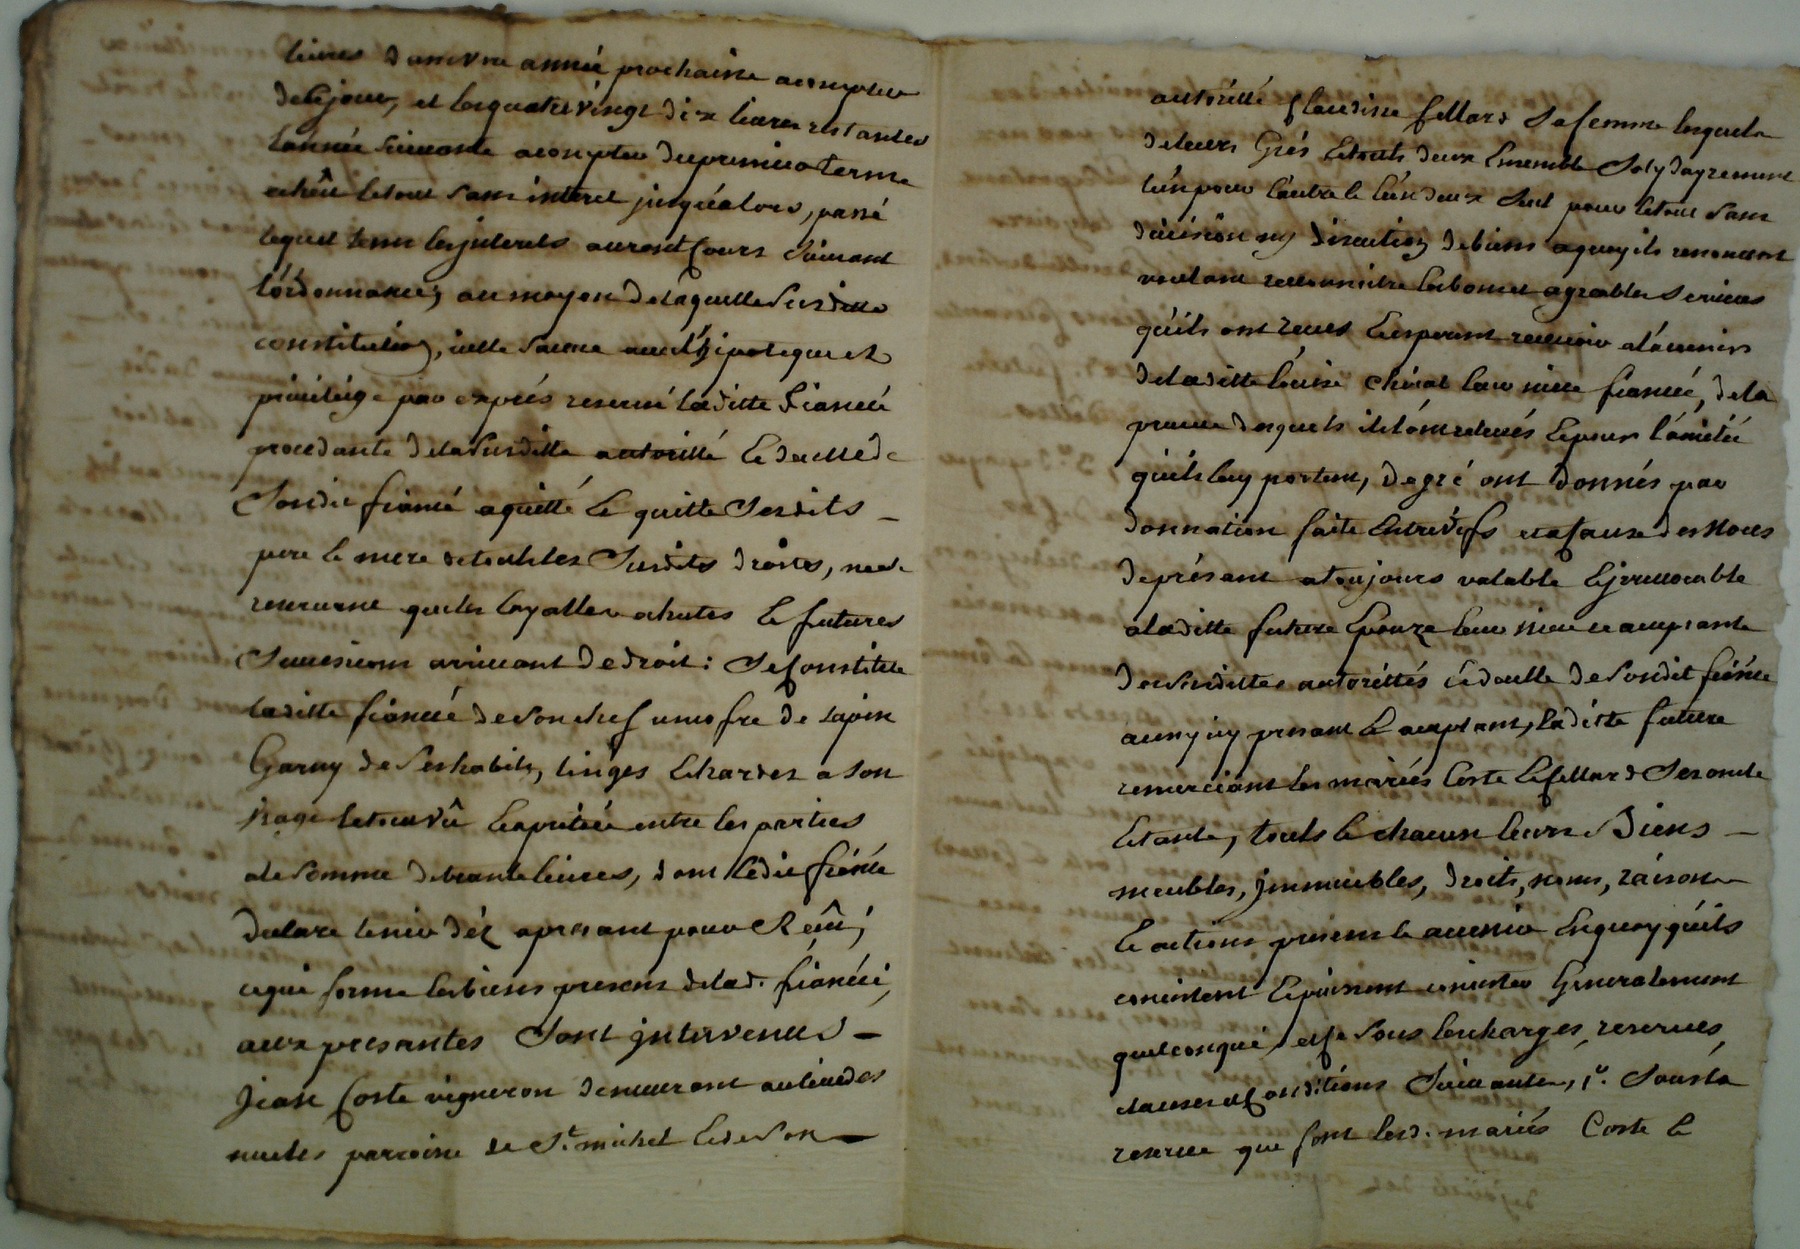 livres dans une année prochaine acompter
de ce jour, et les quatre vingt dix livres restantes
l'année suivante acompter du premier terme
echêu le tout sans interet jusqu'alors, passé
lequel tems les interets auront cours suivant
l'órdonnance; au moyen de laquelle susditte
constitution, icelle sauve avec l'hipoteque et
privilége par exprés reservé laditte fiancée
procedante de la susditte autorité & de celle de
sondit fiancé a quitté & quitte sesdits
pere & mere de touts les susdits droits, ne se
reservant que les loyalles echutes & futures
successions arrivant de droit: se constitue
laditte fiancée de son chef un cofre de sapin
garny de ses habits, linges & hardes a son
usage le tout vû & apretié entre les parties
a la somme de trante livres, dont ledit fiancé
declare tenir déz apresant pour reçû;
ce qui forme les biens presens de lad. fiancée,
aux presantes sont intervenus
Jean Coste vigneron demeurant au lieu des
parroisse de St. michel & de son
autorité Claudine fellard sa femme lesquels
de leurs grés & touts deux ensemble solydayrement
l'un pour l'autre & l'un deux seul pour le tout sans
division ny discution de biens a quoy ils renoncent
voulant reconnoitre les bons et agreables services
qu'ils ont reçus & esperent recevoir a l'avenir
de laditte loüise leur niece fiancée, de la
preuve desquels ils l'ont relevés & pour l'amitiée
qu'ils luy portent, de gré ont donnés par
donnation faite entre vifs et a cause des noces
de présant a toujours valable & jrrevocable
a laditte future épouze leur niece acceptante
des susdittes autorittés & de celle de sondit fiancé
aussy icy presant & acceptant, laditte future
remerciant les mariés Coste & fellard ses oncle
& tante, touts & chacun leurs biens
meubles, jmmeubles, droits, noms, raisons
& actions presens & avenir en quoy qu'ils
consistent & puissent consister generalement
quelconque, et ce sous les charges, reserves,
clauses et conditions suivantes, 1o. sous la
reserve que font lesd. mariés Coste &